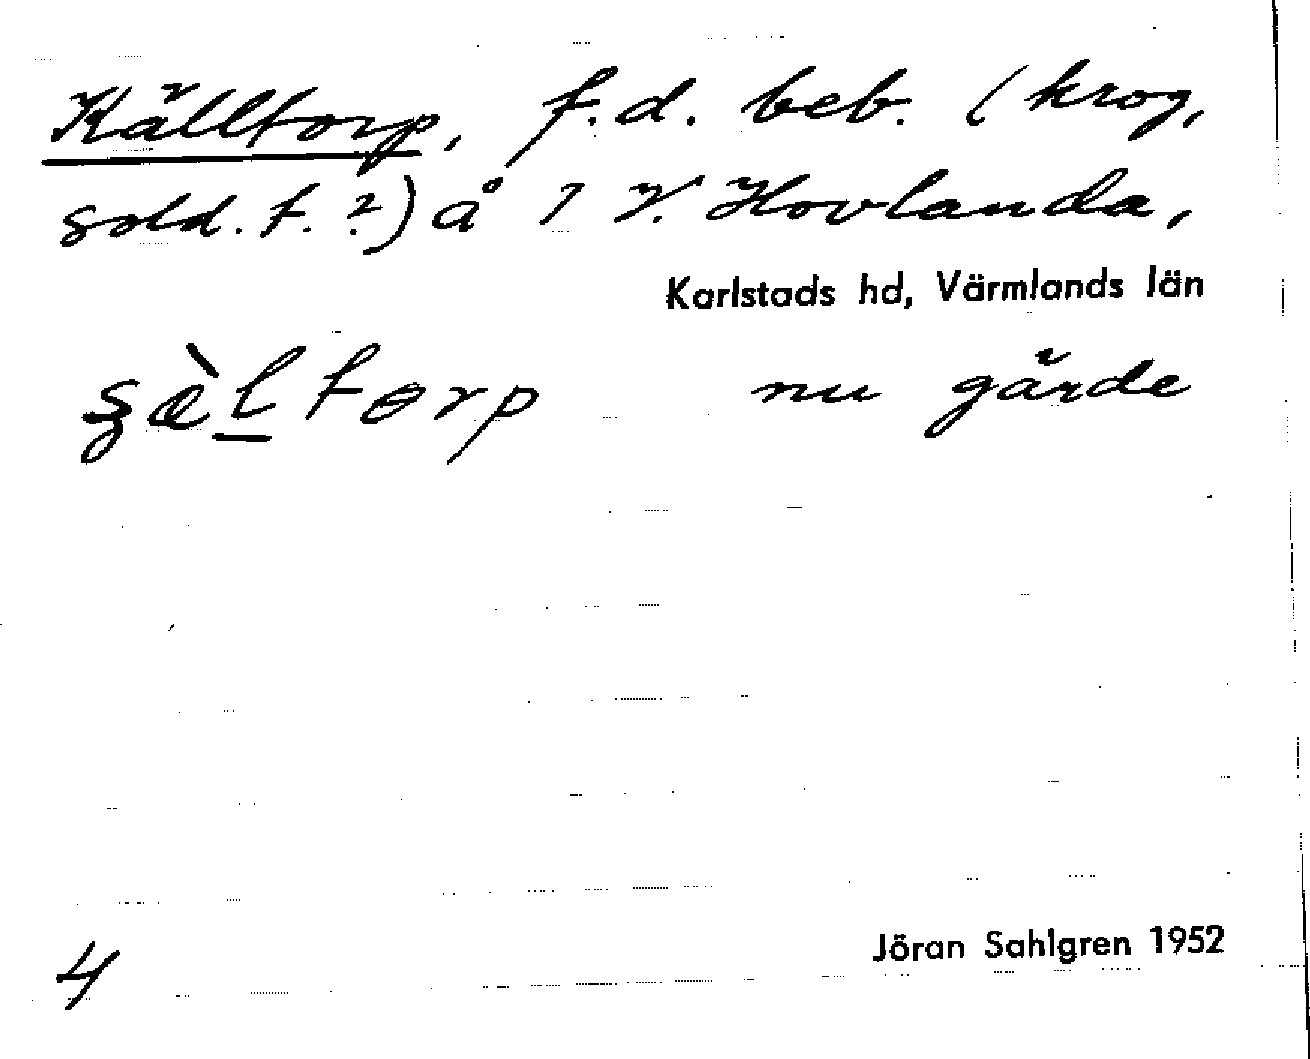 Källtorp, f.d. beb. (krog,
sold.t.?) å 1 V. Hovlanda,
Karlstads hd, Värmlands län
nu gärde
4
Jöran Sahlgren 1952